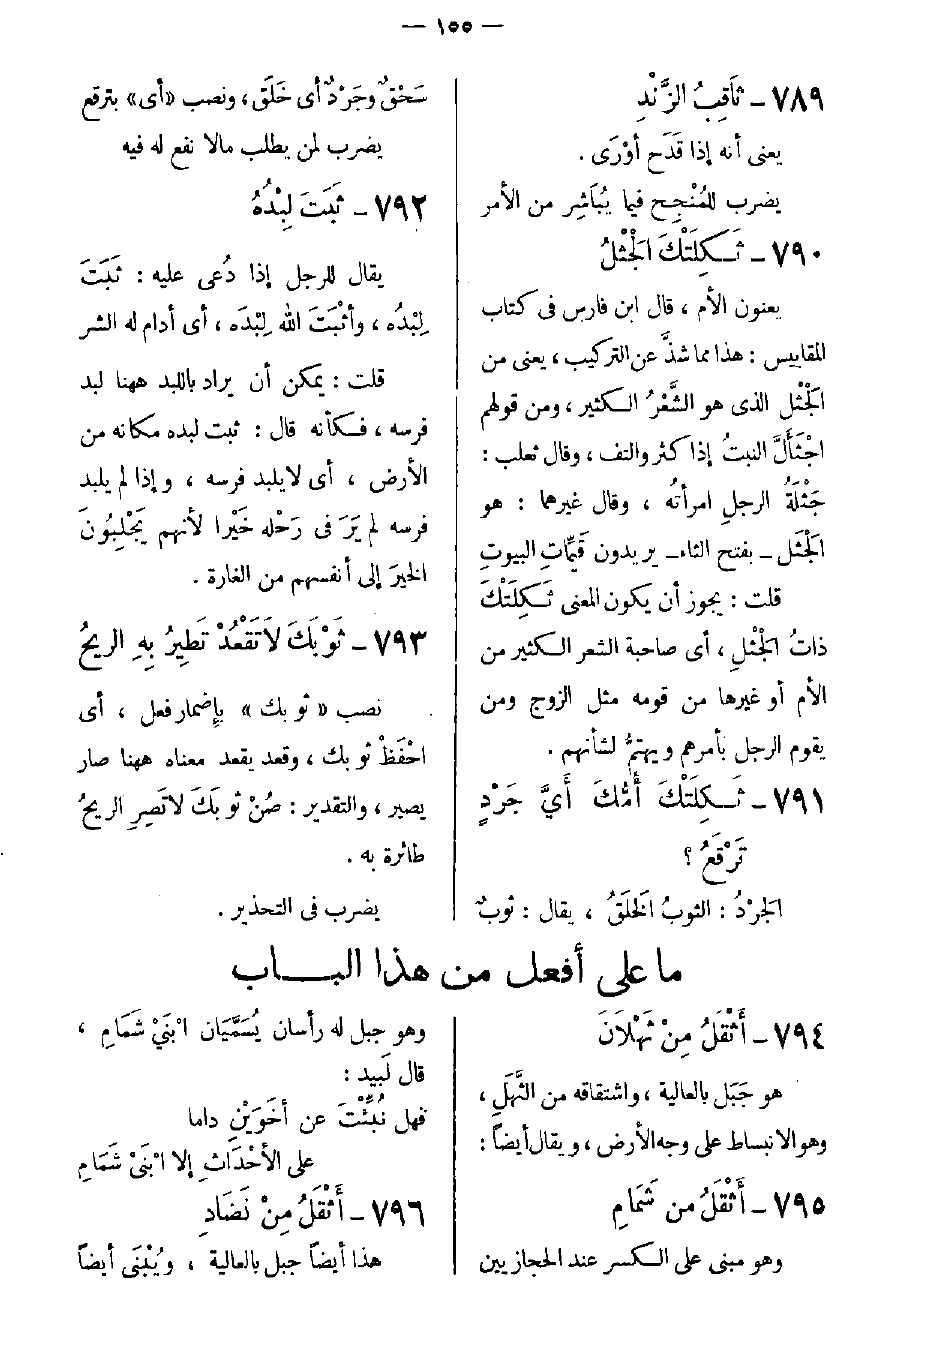 — ١٥٥ —
٧٨٩ - ثَاقِبُ الزَّنْدِ
يعنى أنه إذا قَدَح أوْرَى .
يضرب للمُنْجِح فيما يُبَاشِر من الأمر
٧٩٠ - ثَكِلَتْكَ الجَثْلُ
يعنون الأم ، قال ابن فارس فى كتاب
المقاييس : هذا مما شذَّ عن التركيب ، يعنى من
الجَثْل الذى هو الشَّعْرُ الكثير ، ومن قولهم
اجْثَأَلَّ النبتُ إذا كثر والتف ، وقال ثعلب :
جَثْلَةُ الرجلِ امرأتُه ، وقال غيرهما : هو
الجَثَل - بفتح الثاء - يريدون قَيِّمَاتِ البيوتِ
قلت : يجوز أن يكون المعنى ثَكِلَتْكَ
ذاتُ الجَثْلِ ، أى صاحبة الشعر الكثير من
الأم أو غيرها من قومه مثل الزوج ومن
يقوم الرجل بأمرهم ويهتمُّ لشأنهم .
٧٩١ - ثَكِلَتْكَ أُمُّكَ أَيَّ جَرْدٍ
تَرْقَعُ ؟
الجَرْدُ : الثوبُ الخَلَقُ ، يقال : ثوبٌ
سَحْقٌ وجَرْدٌ أى خَلَق ، ونصب «أى» بترقع
يضرب لمن يطلب مالا نفع له فيه
٧٩٢ - ثَبَتَ لِبْدُهُ
يقال للرجل إذا دُعى عليه : ثَبَتَ
لِبْدُه ، وأثْبَتَ الله لِبْدَه ، أى أدام له الشر
قلت : يمكن أن يراد باللبد ههنا لبد
فرسه ، فكأنه قال : ثبت لبده مكانه من
الأرض ، أى لا يلبد فرسه ، وإذا لم يلبد
فرسه لم يَرَ فى رَحْله خَيْرا لأنهم يَجْلِبُونَ
الخيرَ إلى أنفسهم من الغارة .
٧٩٣ - ثَوْبَكَ لاَ تَقْعُدْ تَطِيرُ بِهِ الريحُ
نصب « ثوبك » بإضمار فعل ، أى
احْفَظْ ثوبك ، وقعد يقعد معناه ههنا صار
يصير ، والتقدير : صُنْ ثوبَكَ لا تَصِرِ الريحُ
طائرة به .
يضرب فى التحذير .
ما على أفعل من هذا الباب
٧٩٤ - أَثْقَلُ مِنْ ثَهْلاَنَ
هو جَبَل بالعالية ، واشتقاقه من الثَّهَلِ ،
وهو الانبساط على وجه الأرض ، ويقال أيضاً :
٧٩٥ - أَثْقَلُ من شَمَامِ
وهو مبنى على الكسر عند الحجازيين
وهو جبل له رأسان يُسَمَّيَان ابْنَيْ شَمَامِ ،
قال لَبيد :
فهل نُبِّئْتَ عن أخَوَيْنِ داما
على الأحْدَاثِ إلا ابْنَىْ شَمَامِ
٧٩٦ - أَثْقَلُ مِنْ نَضَادِ
هذا أيضاً جبل بالعالية ، ويُبْنَى أيضاً